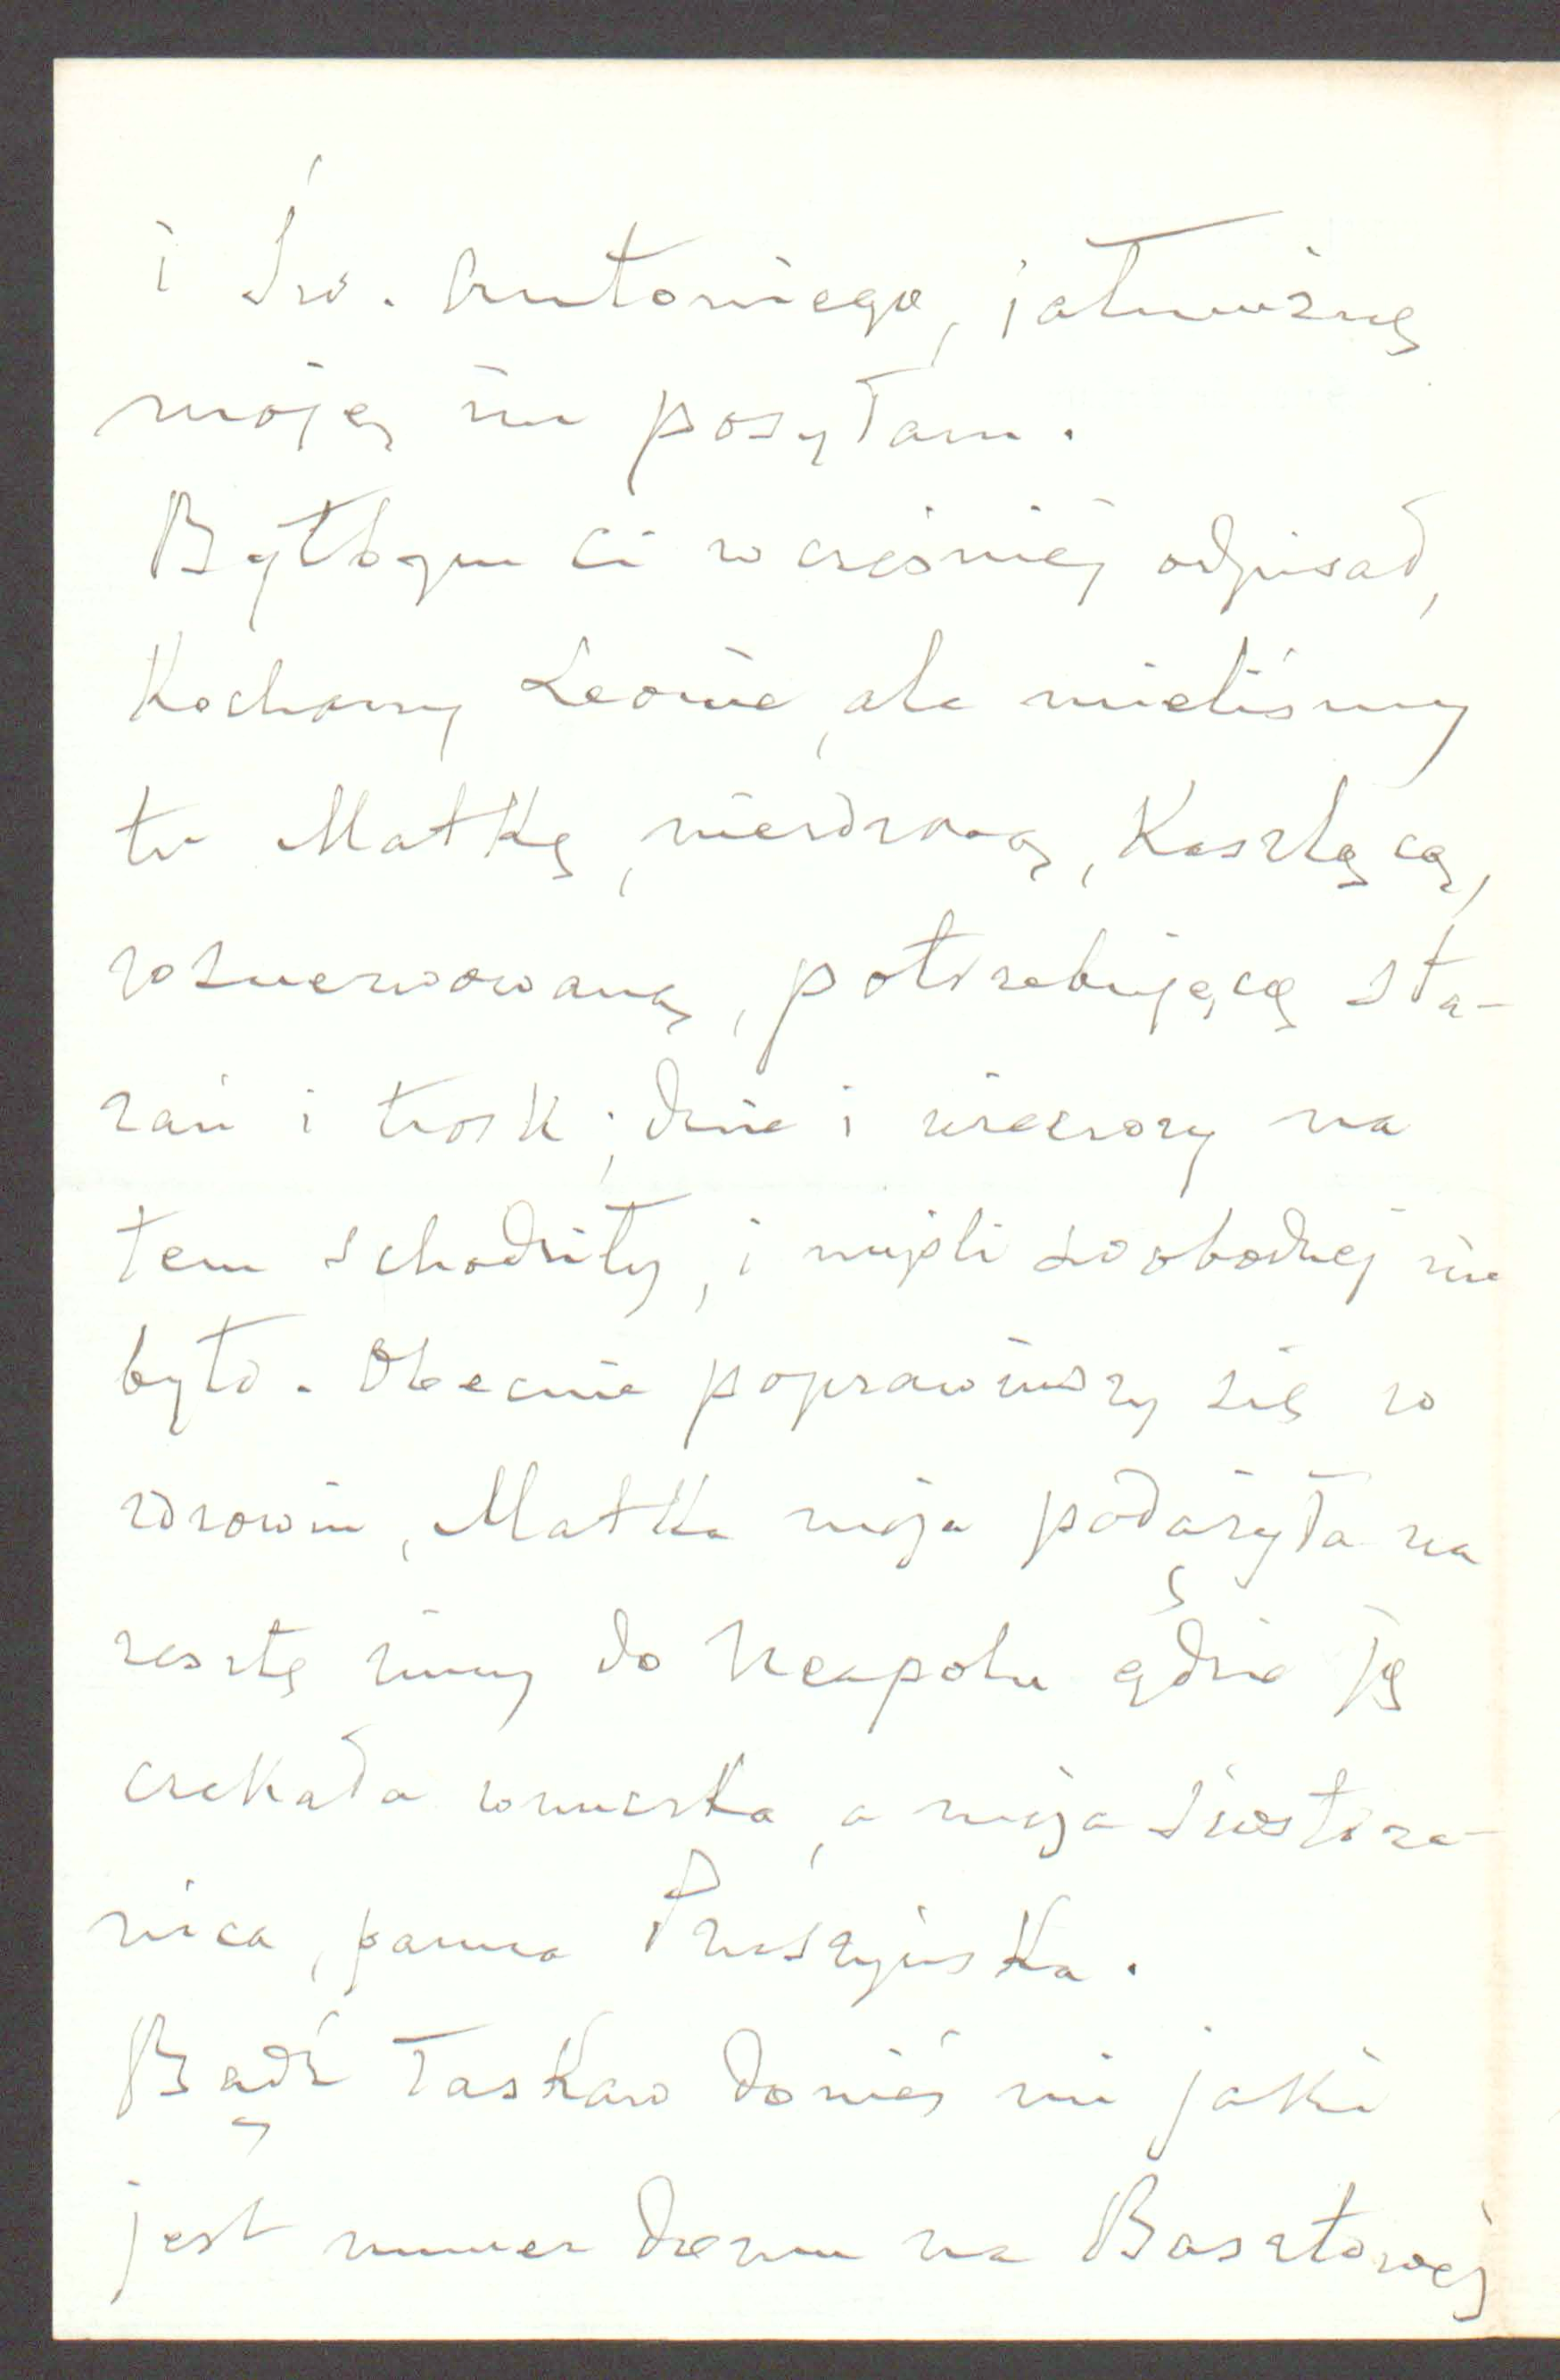 i Św. Antoniego, jałmużnę
moję im posyłam.
Byłbym Ci wcześniej odpisał,
Kochany Leonie, ale mieliśmy
tu Matkę, niezdrową, Kaszlącą,
roznerwowaną, potrzebującą sta-
rań i trosk; dnie i wieczory na
tem schodziły, i myśli swobodnej nie
było. Obecnie poprawiwszy się w
zdrowiu, Matka moja podążyła na
resztę zimy do Neapolu gdzie Ję
czekała wnuczka, a moja siostrze-
nica, panna Pruszyńska.
Bądź łaskaw donieś mi jaki
jest numer domu na Basztowéj